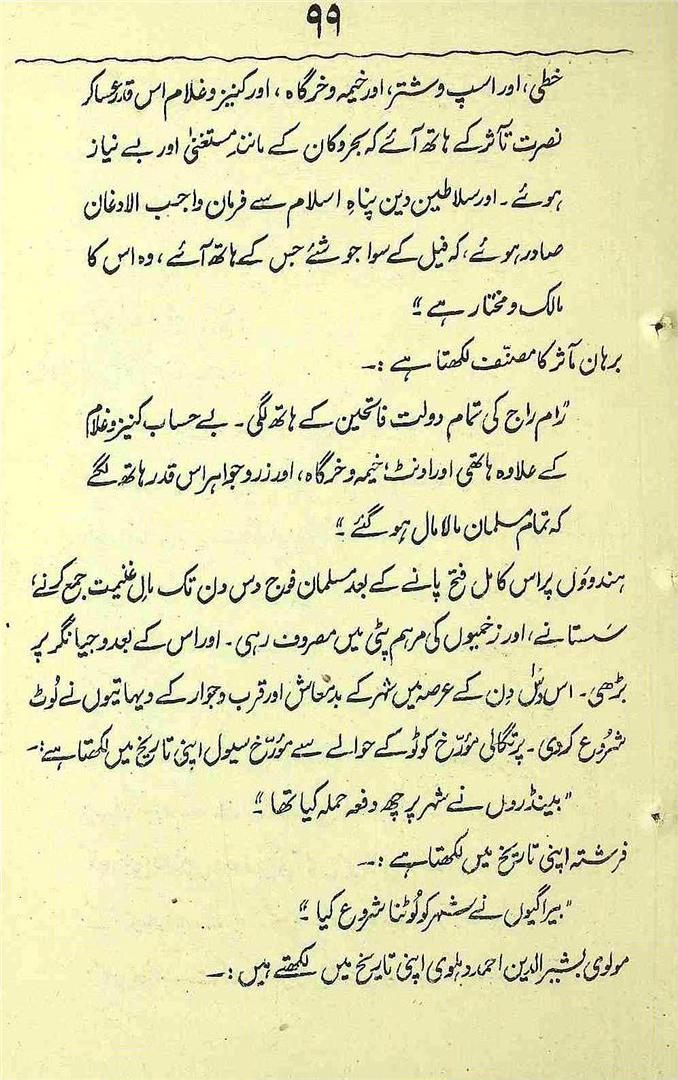 ۹۹
خطی، اور اسپ و شتر، اور خیمہ و خرگاہ، اور کنیز و غلام اس قدر عساکر
نصرت تآثر کے ہاتھ آئے کہ بحر و کان کے مانند مستغنیٰ اور بے نیاز
ہوئے۔ اور سلاطین دین پناہِ اسلام سے فرمان واجب الادغان
صادر ہوئے، کہ فیل کے سوا جو شئے جس کے ہاتھ آئے، وہ اس کا
مالک و مختار ہے "
برہان مآثر کا مصنّف لکھتا ہے :۔
"رام راج کی تمام دولت فاتحین کے ہاتھ لگی۔ بے حساب کنیز و غلام
کے علاوہ ہاتھی اور اونٹ، خیمہ و خرگاہ، اور زر و جواہر اس قدر ہاتھ لگے
کہ تمام مسلمان مالا مال ہو گئے "
ہندوؤں پر اس کامل فتح پانے کے بعد مسلمان فوج دس دن تک مالِ غنیمت جمع کرنے،
سَستانے، اور زخمیوں کی مرہم پٹی میں مصروف رہی۔ اور اس کے بعد وجیانگر پر
بڑھی۔ اس دسّ دن کے عرصہ میں شہر کے بدمعاش اور قرب و جوار کے دیہاتیوں نے لُوٹ
شروع کر دی۔ پرتگالی مؤرّخ کوٹو کے حوالے سے مؤرّخ سیول اپنی تاریخ میں لکھتا ہے :۔
"بینڈروں نے شہر پر چھ دفعہ حملہ کیا تھا "
فرشتہ اپنی تاریخ میں لکھتا ہے :۔
"بیراگیوں نے شہر کو لُوٹنا شروع کیا "
مولوی بشیر الدین احمد دہلوی اپنی تاریخ میں لکھتے ہیں :۔